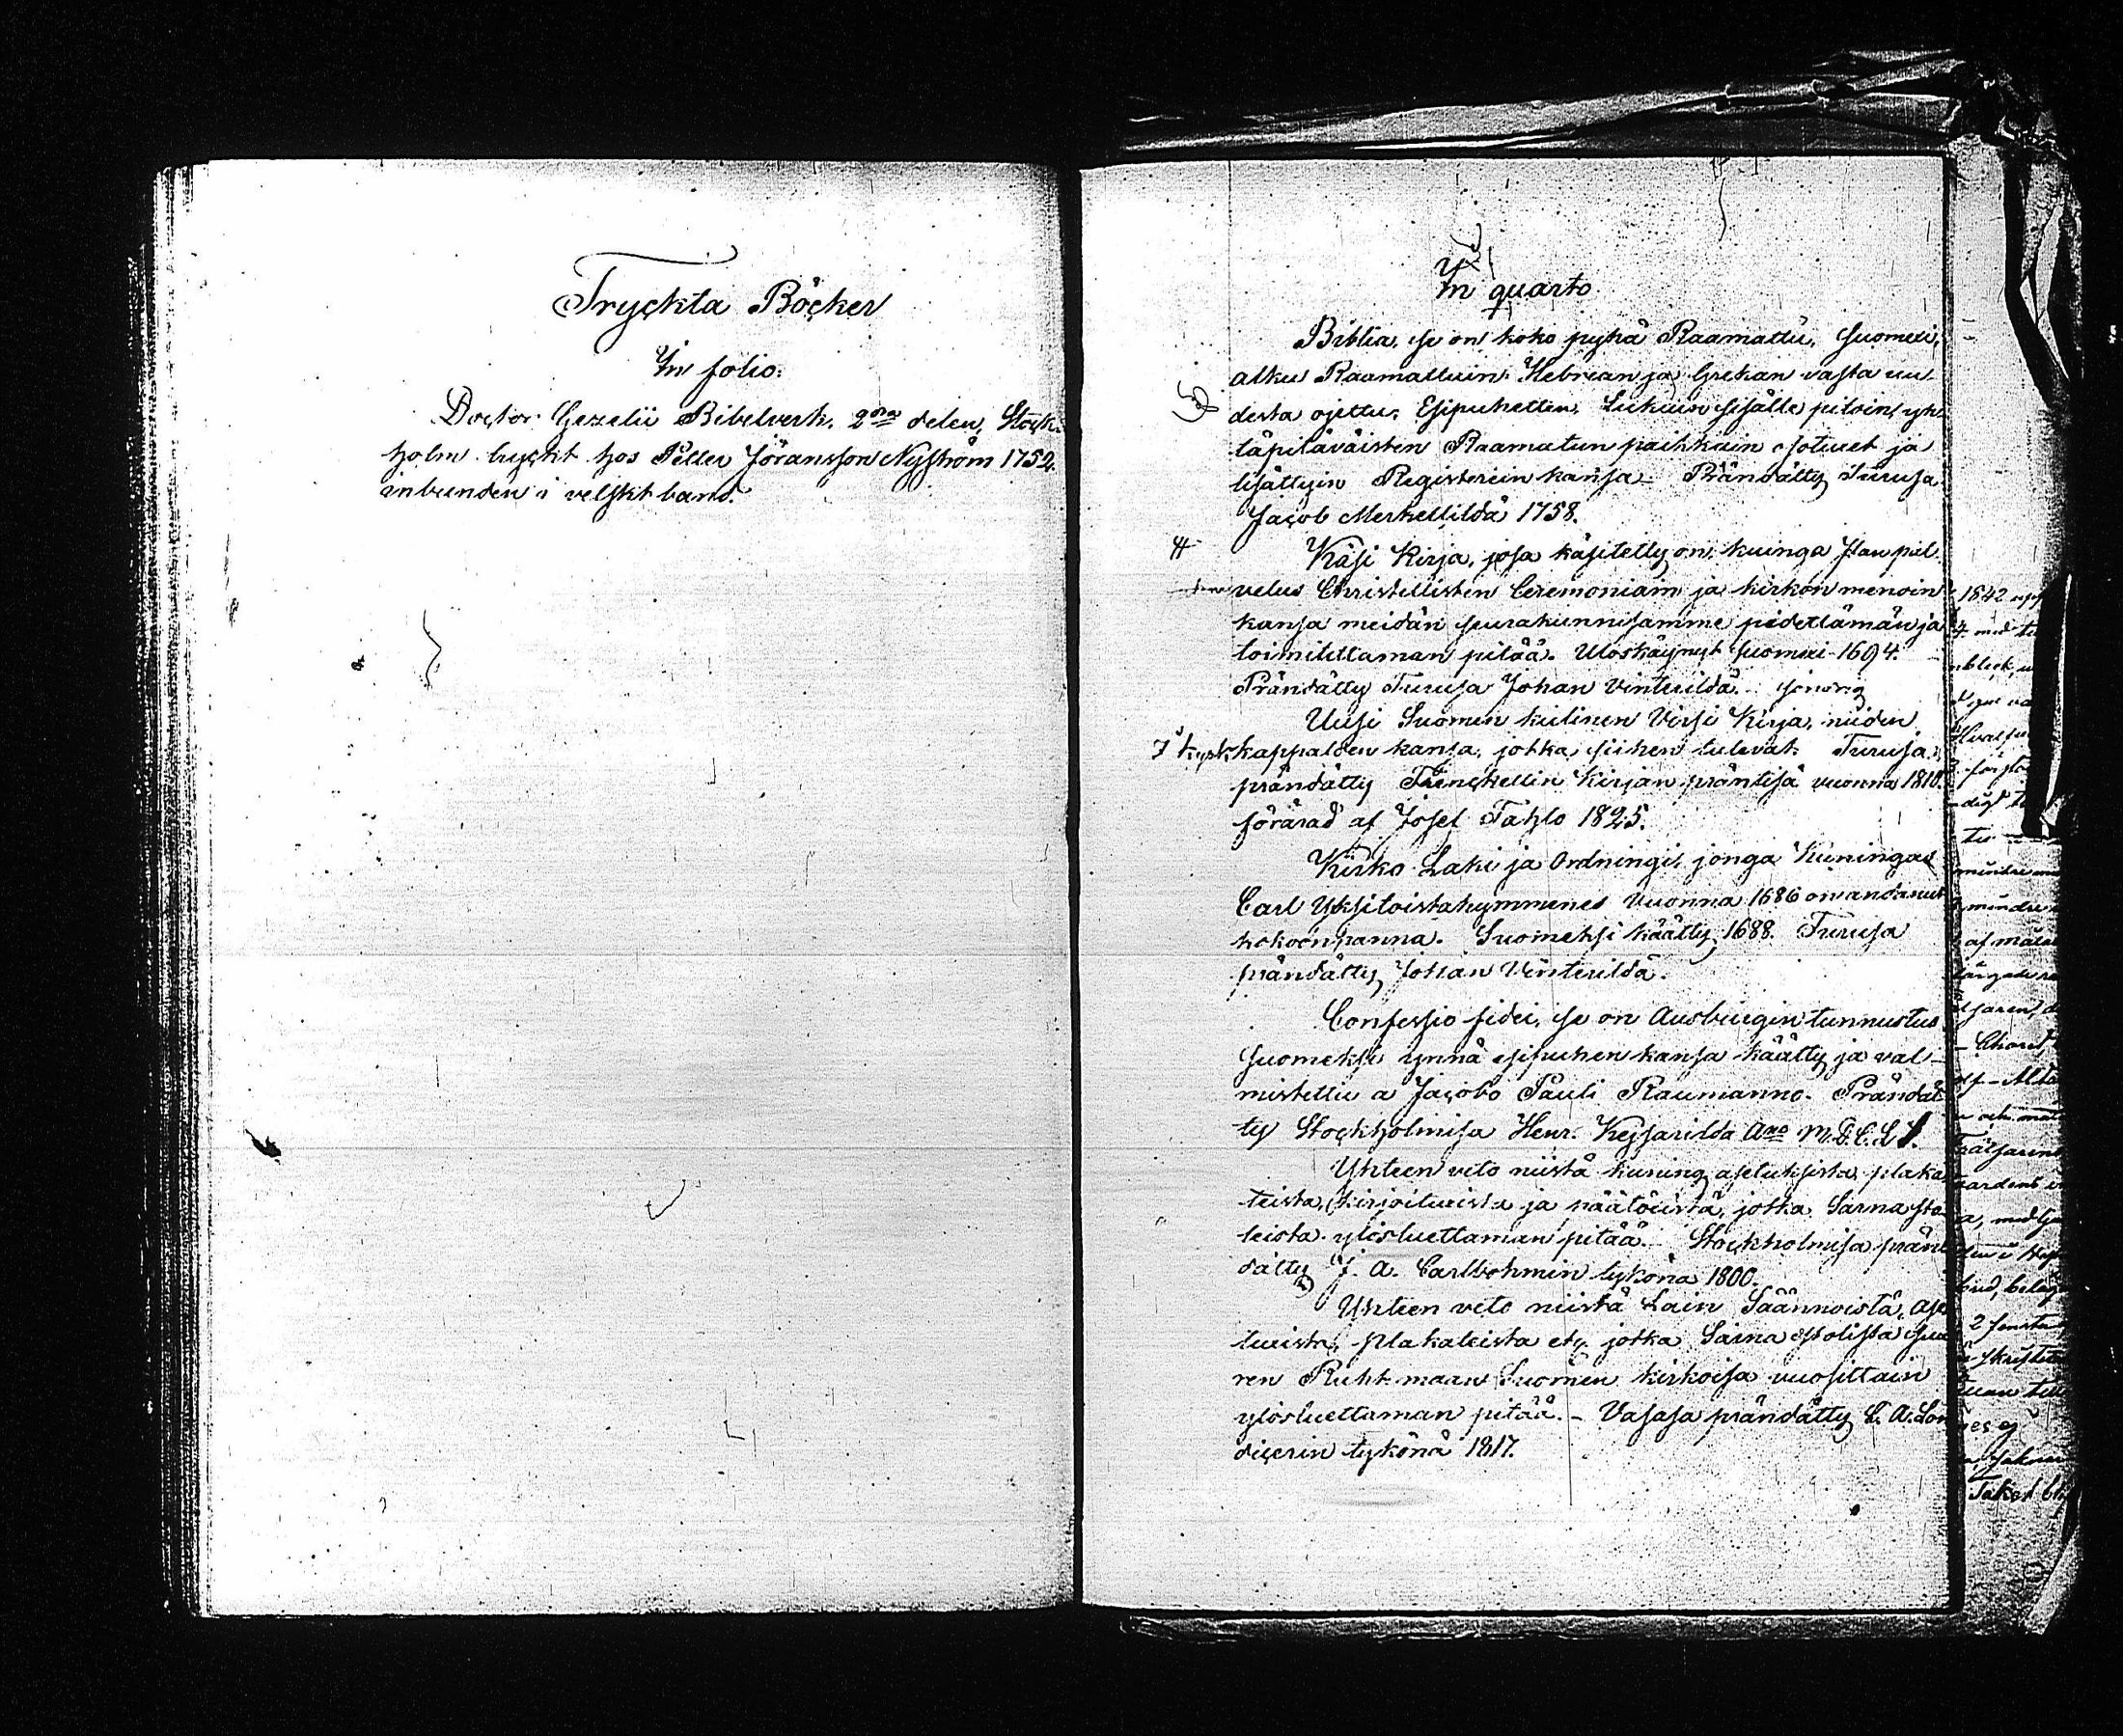 Tryckta Böcker
In folio.
Doctor Gezelii Bibelverk. 2dra delen, Stock-
holm tryckt hos Petter Jöransson Nyström 1752.
inbunden i velskt band.
In quarto
Biblia, se on koko pyhä Raamattu, Suomexi,
alku Raamattuin Hebrean ja Grekan vasta uu-
desta ojettu, Esipuhetten, Lukuin sisälle pitoin, yh-
täpitäväisten Raamatun paikkain osotuxet ja
lisättyin Registerein kansa. Prändätty Turusa
Jacob Merkellildä 1758.
4
Käsi Kirja, josa käsitetty on, kuinga Jlan pal-
velus Christillisten Ceremoniain ja kirkon menoin
kansa meidän seurakunnisamme pidettämän ja
toimitettaman pitää. Uloskäynyt Suomexi 1694.
Prändätty Turusa Johan Vinterildä.
Uusi Suomen kielinen Virsi Kirja, niiden
7 st kappalden kansa, jotka siihen tulevat. Turusa,
prändätty Frenckellin Kirjan präntisä vuonna 1818.
förärad af Josef Tahlo 1825.
Kirko Laki ja Ordningi, jonga Kuningas
Carl Yksitoistakymmenes vuonna 1686 on andanut
kokoonpanna. Suomeksi käätty 1688. Turusa
prändätty Johan Vinterildä.
Confessio fidei, se on Ausburgin tunnustus
Suomeksi ynnä esipuhen kansa käätty ja val-
mistettu a Jacobo Pauli Raumanno. Prändät-
ty Stockholmisa Henr. Keysarilda Ano M.D.C.L I.
Yhteen veto niistä kuning. asetuksista, plaka-
teista, kirjoituxista ja päätöxistä, jotka Sarna sto-
leista ylösluettaman pitää. Stockholmisa prän-
dätty J. A. Carlbohmin tykönä 1800.
Yhteen veto niistä Lain Säännoistä, ase-
tuxista, plakateista etc. jotka Sarna stolista Suu-
ren Ruhtinaan maan Suomen kirkoisa vuosittain
ylösluettaman pitää. - Vasasa prändätty C. A. Lon-
dicerin tykönä 1817.